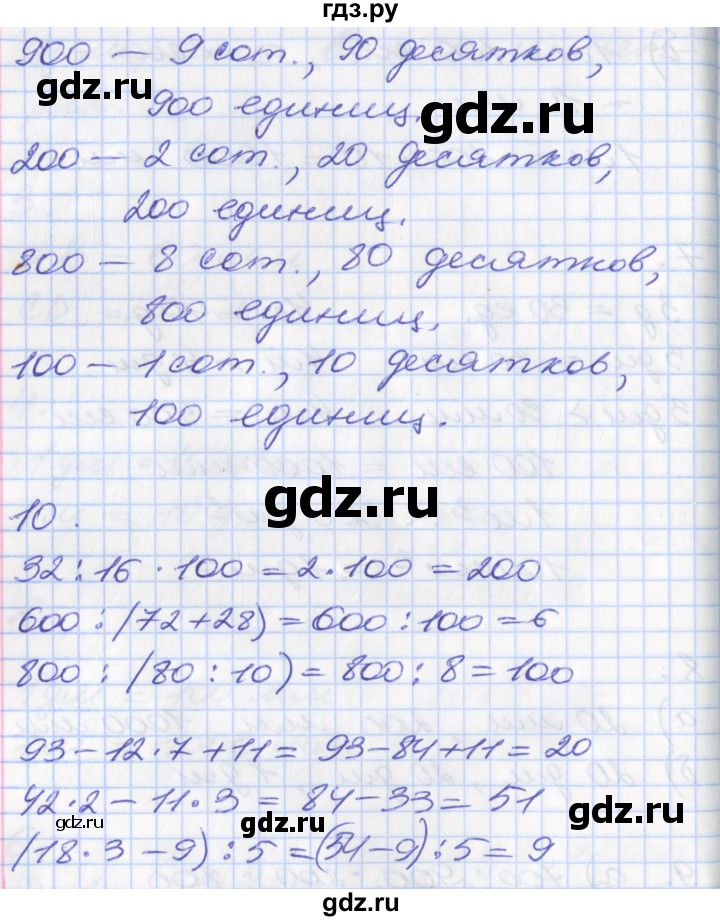 гдз.ру
900 — 9 сот., 90 десятков,
900 единиц.
gdz.ru
gdz.ru
200 — 2 сот., 20 десятков,
200 единиц.
800 — 8 сот., 80 десятков,
800 единиц.
100 — 1 сот., 10 десятков,
100 единиц.
gdz.ru
10.
32 : 16 · 100 = 2 · 100 = 200
600 : (72 + 28) = 600 : 100 = 6
800 : (80 : 10) = 800 : 8 = 100
93 - 12 · 7 + 11 = 93 - 84 + 11 = 20
42 · 2 - 11 · 3 = 84 - 33 = 51
gdz.ru
gdz.ru
gdz.ru
(18 · 3 - 9) : 5 = (54 - 9) : 5 = 9
gdz.ru